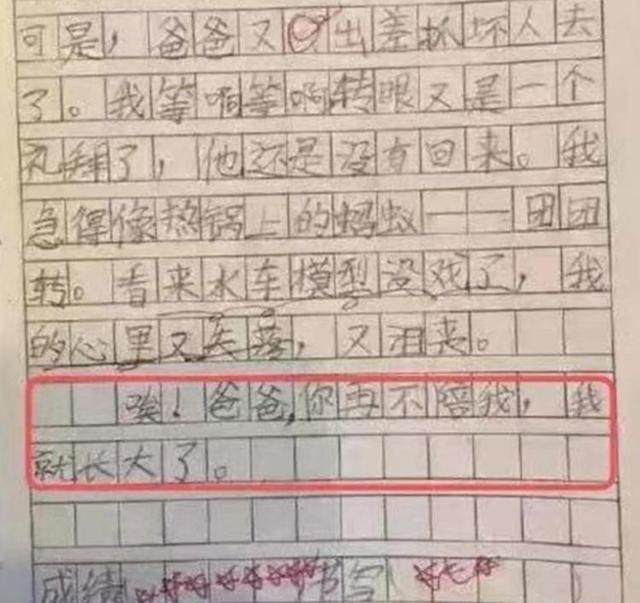 可是，爸爸又出差抓坏人去
了。我等啊等啊转眼又是一个
礼翔了，他还是没有回来。我
急得像热锅上的蚂蚁——团团
转。看来水车模型没戏了，我
的心里又失落，又沮丧。
唉！爸爸，你再不陪我，我
就长大了。
成绩 书写